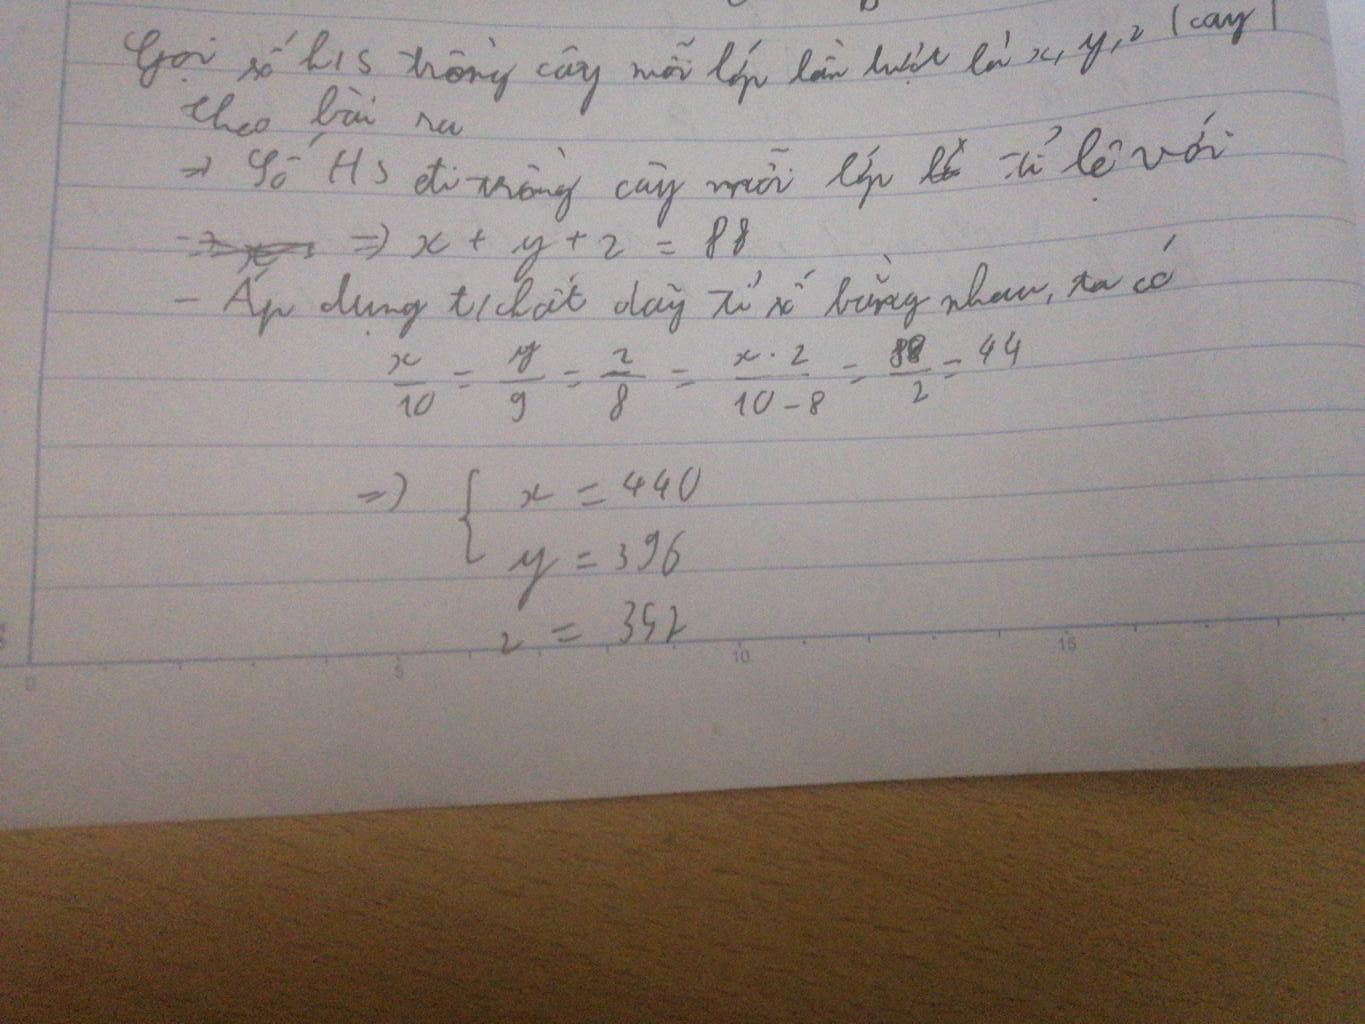 Gọi số h/s trồng cây mỗi lớp lần lượt là x, y, z (cây)
theo bài ra
=> Số HS đi trồng cây mỗi lớp tỉ lệ với
=> x + y + z = 88
- Áp dụng t/chất dãy tỉ số bằng nhau, ta có
x/10 = y/9 = z/8 = x . z/10 - 8 = 88/2 = 44
=> { x = 440
y = 396
z = 352
0 5 10 15